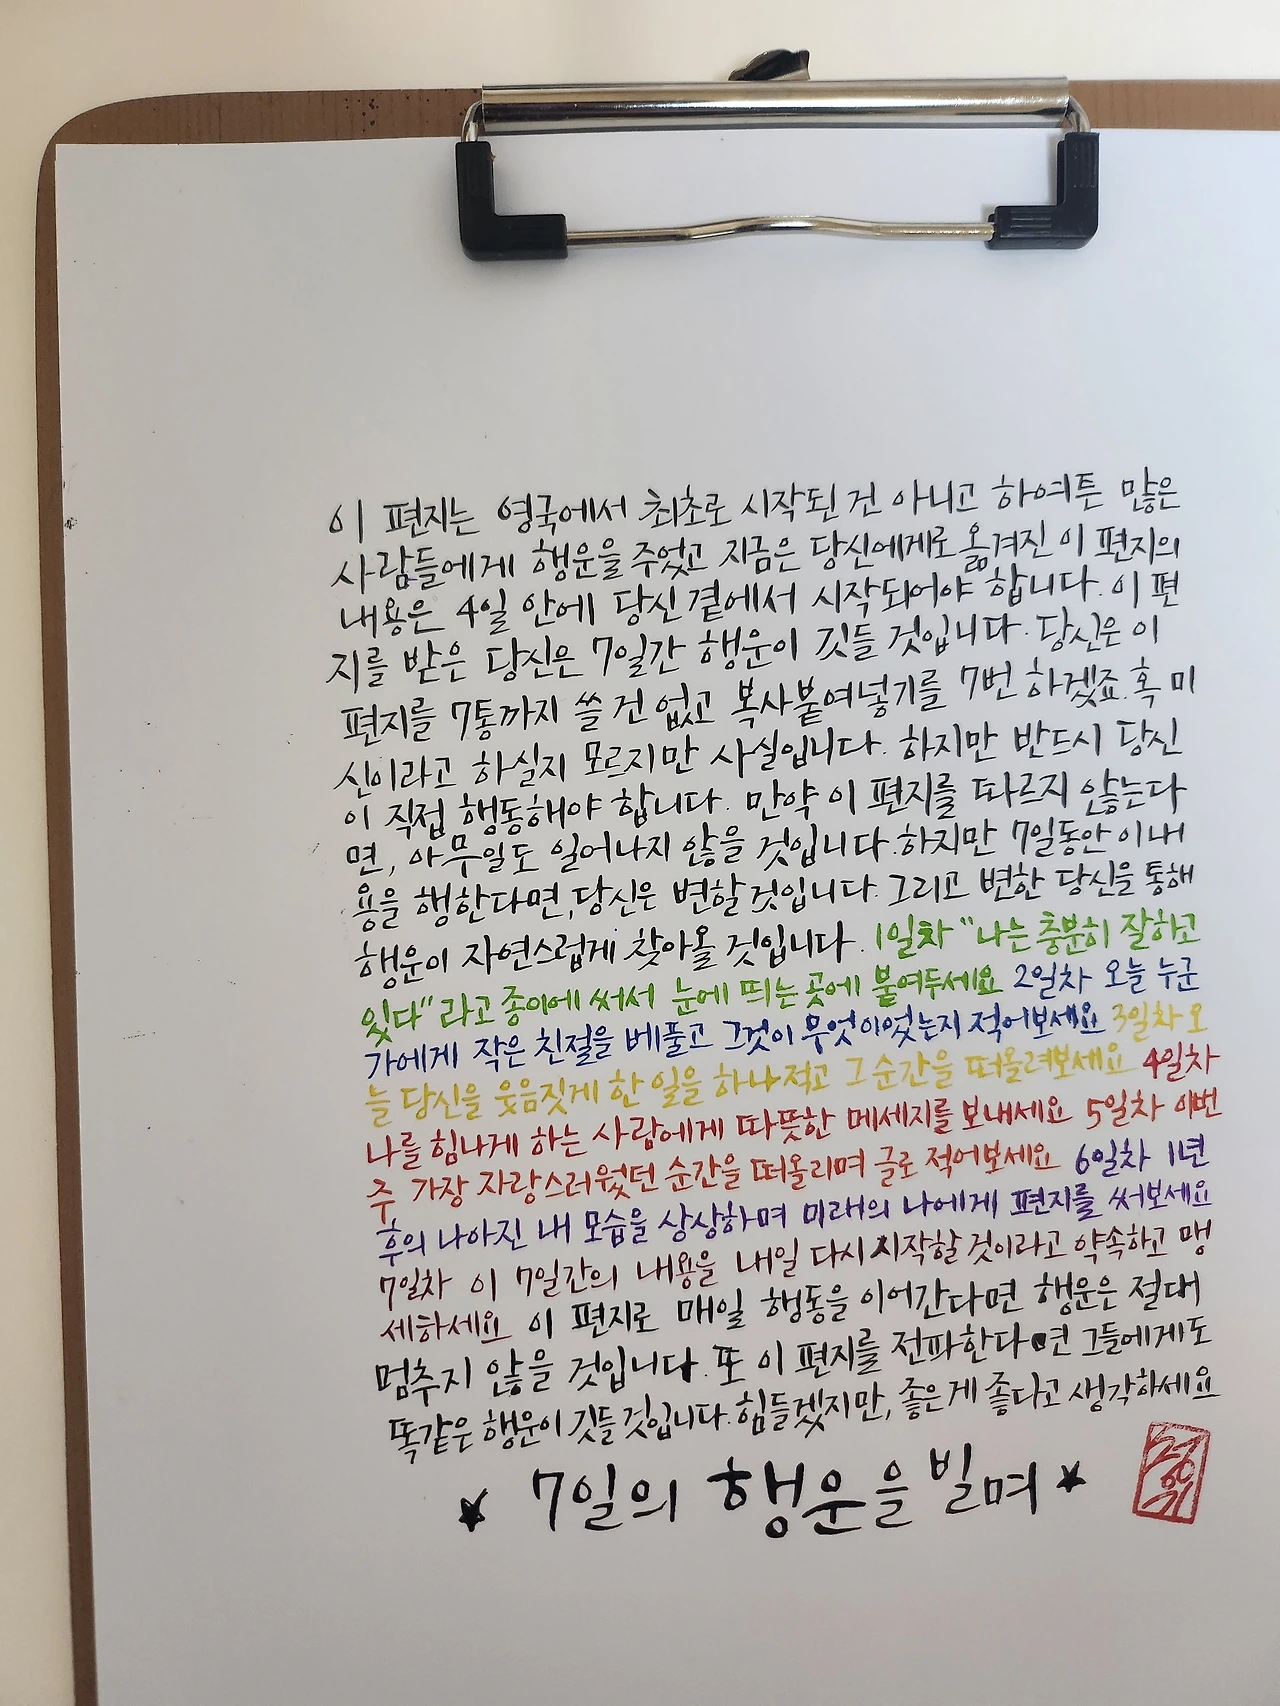 이 편지는 영국에서 최초로 시작된 건 아니고 하여튼 많은
사람들에게 행운을 주었고 지금은 당신에게로 옮겨진 이 편지의
내용은 4일 안에 당신 곁에서 시작되어야 합니다. 이 편
지를 받은 당신은 7일간 행운이 깃들 것입니다. 당신은 이
편지를 7통까지 쓸 건 없고 복사붙여넣기를 7번 하겠죠. 혹 미
신이라고 하실지 모르지만 사실입니다. 하지만 반드시 당신
이 직접 행동해야 합니다. 만약 이 편지를 따르지 않는다
면, 아무일도 일어나지 않을 것입니다. 하지만 7일동안 이 내
용을 행한다면, 당신은 변할 것입니다. 그리고 변한 당신을 통해
행운이 자연스럽게 찾아올 것입니다. 1일차 "나는 충분히 잘하고
있다" 라고 종이에 써서 눈에 띄는 곳에 붙여두세요 2일차 오늘 누군
가에게 작은 친절을 베풀고 그것이 무엇이었는지 적어보세요 3일차 오
늘 당신을 웃음짓게 한 일을 하나 적고 그 순간을 떠올려보세요 4일차
나를 힘나게 하는 사람에게 따뜻한 메세지를 보내세요 5일차 이번
주 가장 자랑스러웠던 순간을 떠올리며 글로 적어보세요 6일차 1년
후의 나아진 내 모습을 상상하며 미래의 나에게 편지를 써보세요
7일차 이 7일간의 내용을 내일 다시 시작할 것이라고 약속하고 맹
세하세요 이 편지로 매일 행동을 이어간다면 행운은 절대
멈추지 않을 것입니다. 또 이 편지를 전파한다면 그들에게도
똑같은 행운이 깃들 것입니다. 힘들겠지만, 좋은게 좋다고 생각하세요
★ 7일의 행운을 빌며 ★